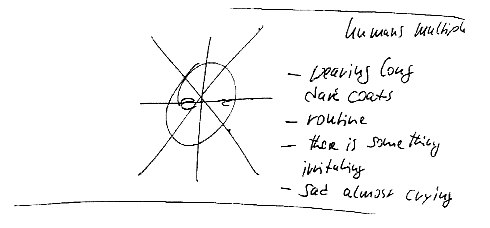 humans multiple
- wearing long
dark coats
- routine
- there is something
irritating
- sad almost crying